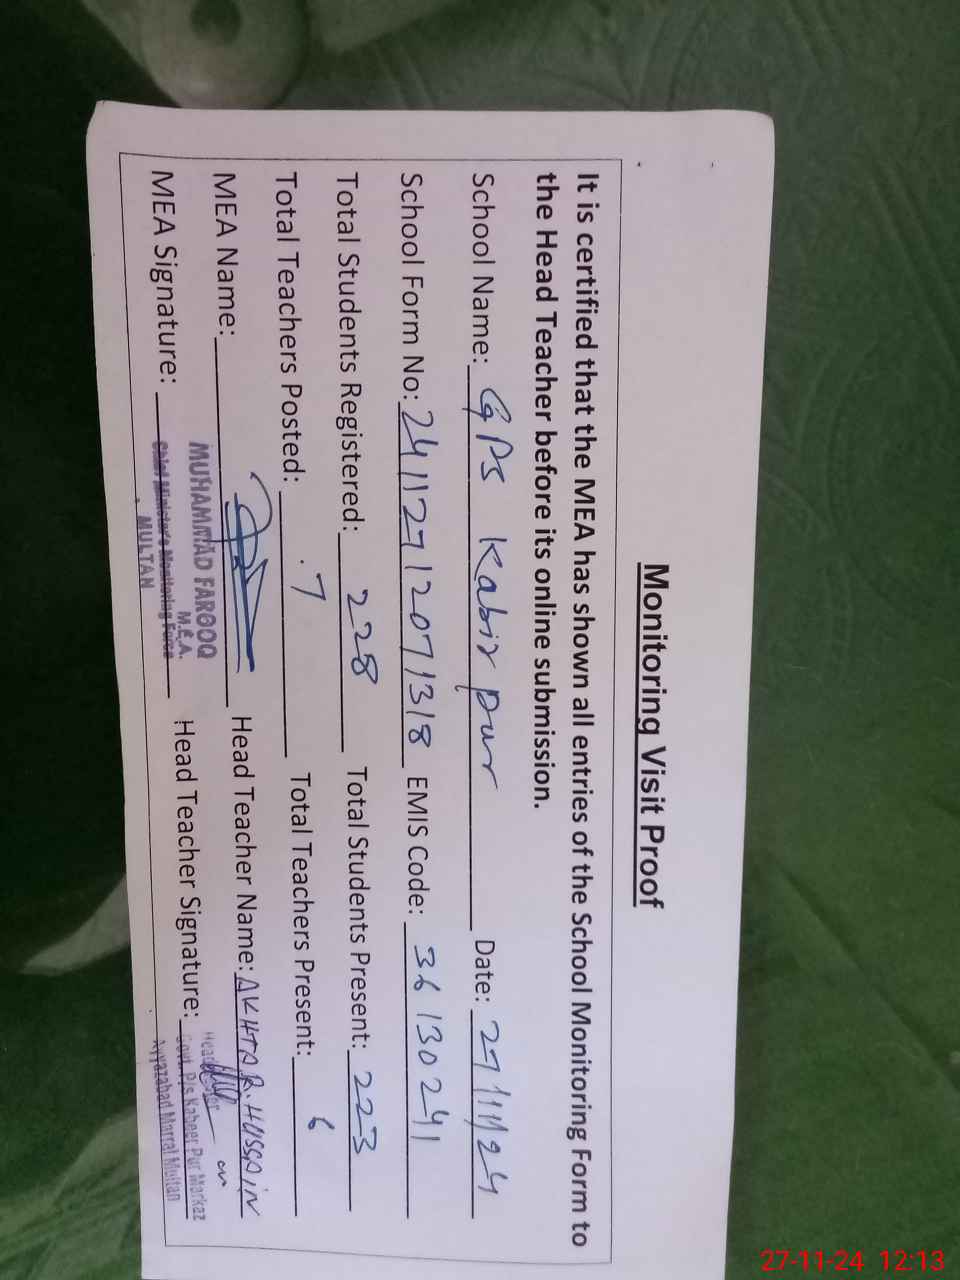 Monitoring Visit Proof
It is certified that the MEA has shown all entries of the School Monitoring Form to
the Head Teacher before its online submission.
School Name: GPS Kabir pur Date: 27/11/24
School Form No: 24112712071318 EMIS Code: 36130241
Total Students Registered: 228 Total Students Present: 223
Total Teachers Posted: 7 Total Teachers Present: 6
MEA Name: Head Teacher Name: AKHTAR HUSSAIN
MUHAMMAD FAROOQ
M.E.A.
MEA Signature: Chief Minister's Monitoring Force Head Teacher Signature:
MULTAN
Govt. P/s Kabeer Pur Markaz
Ayyazabad Marral Multan
27-11-24 12:13